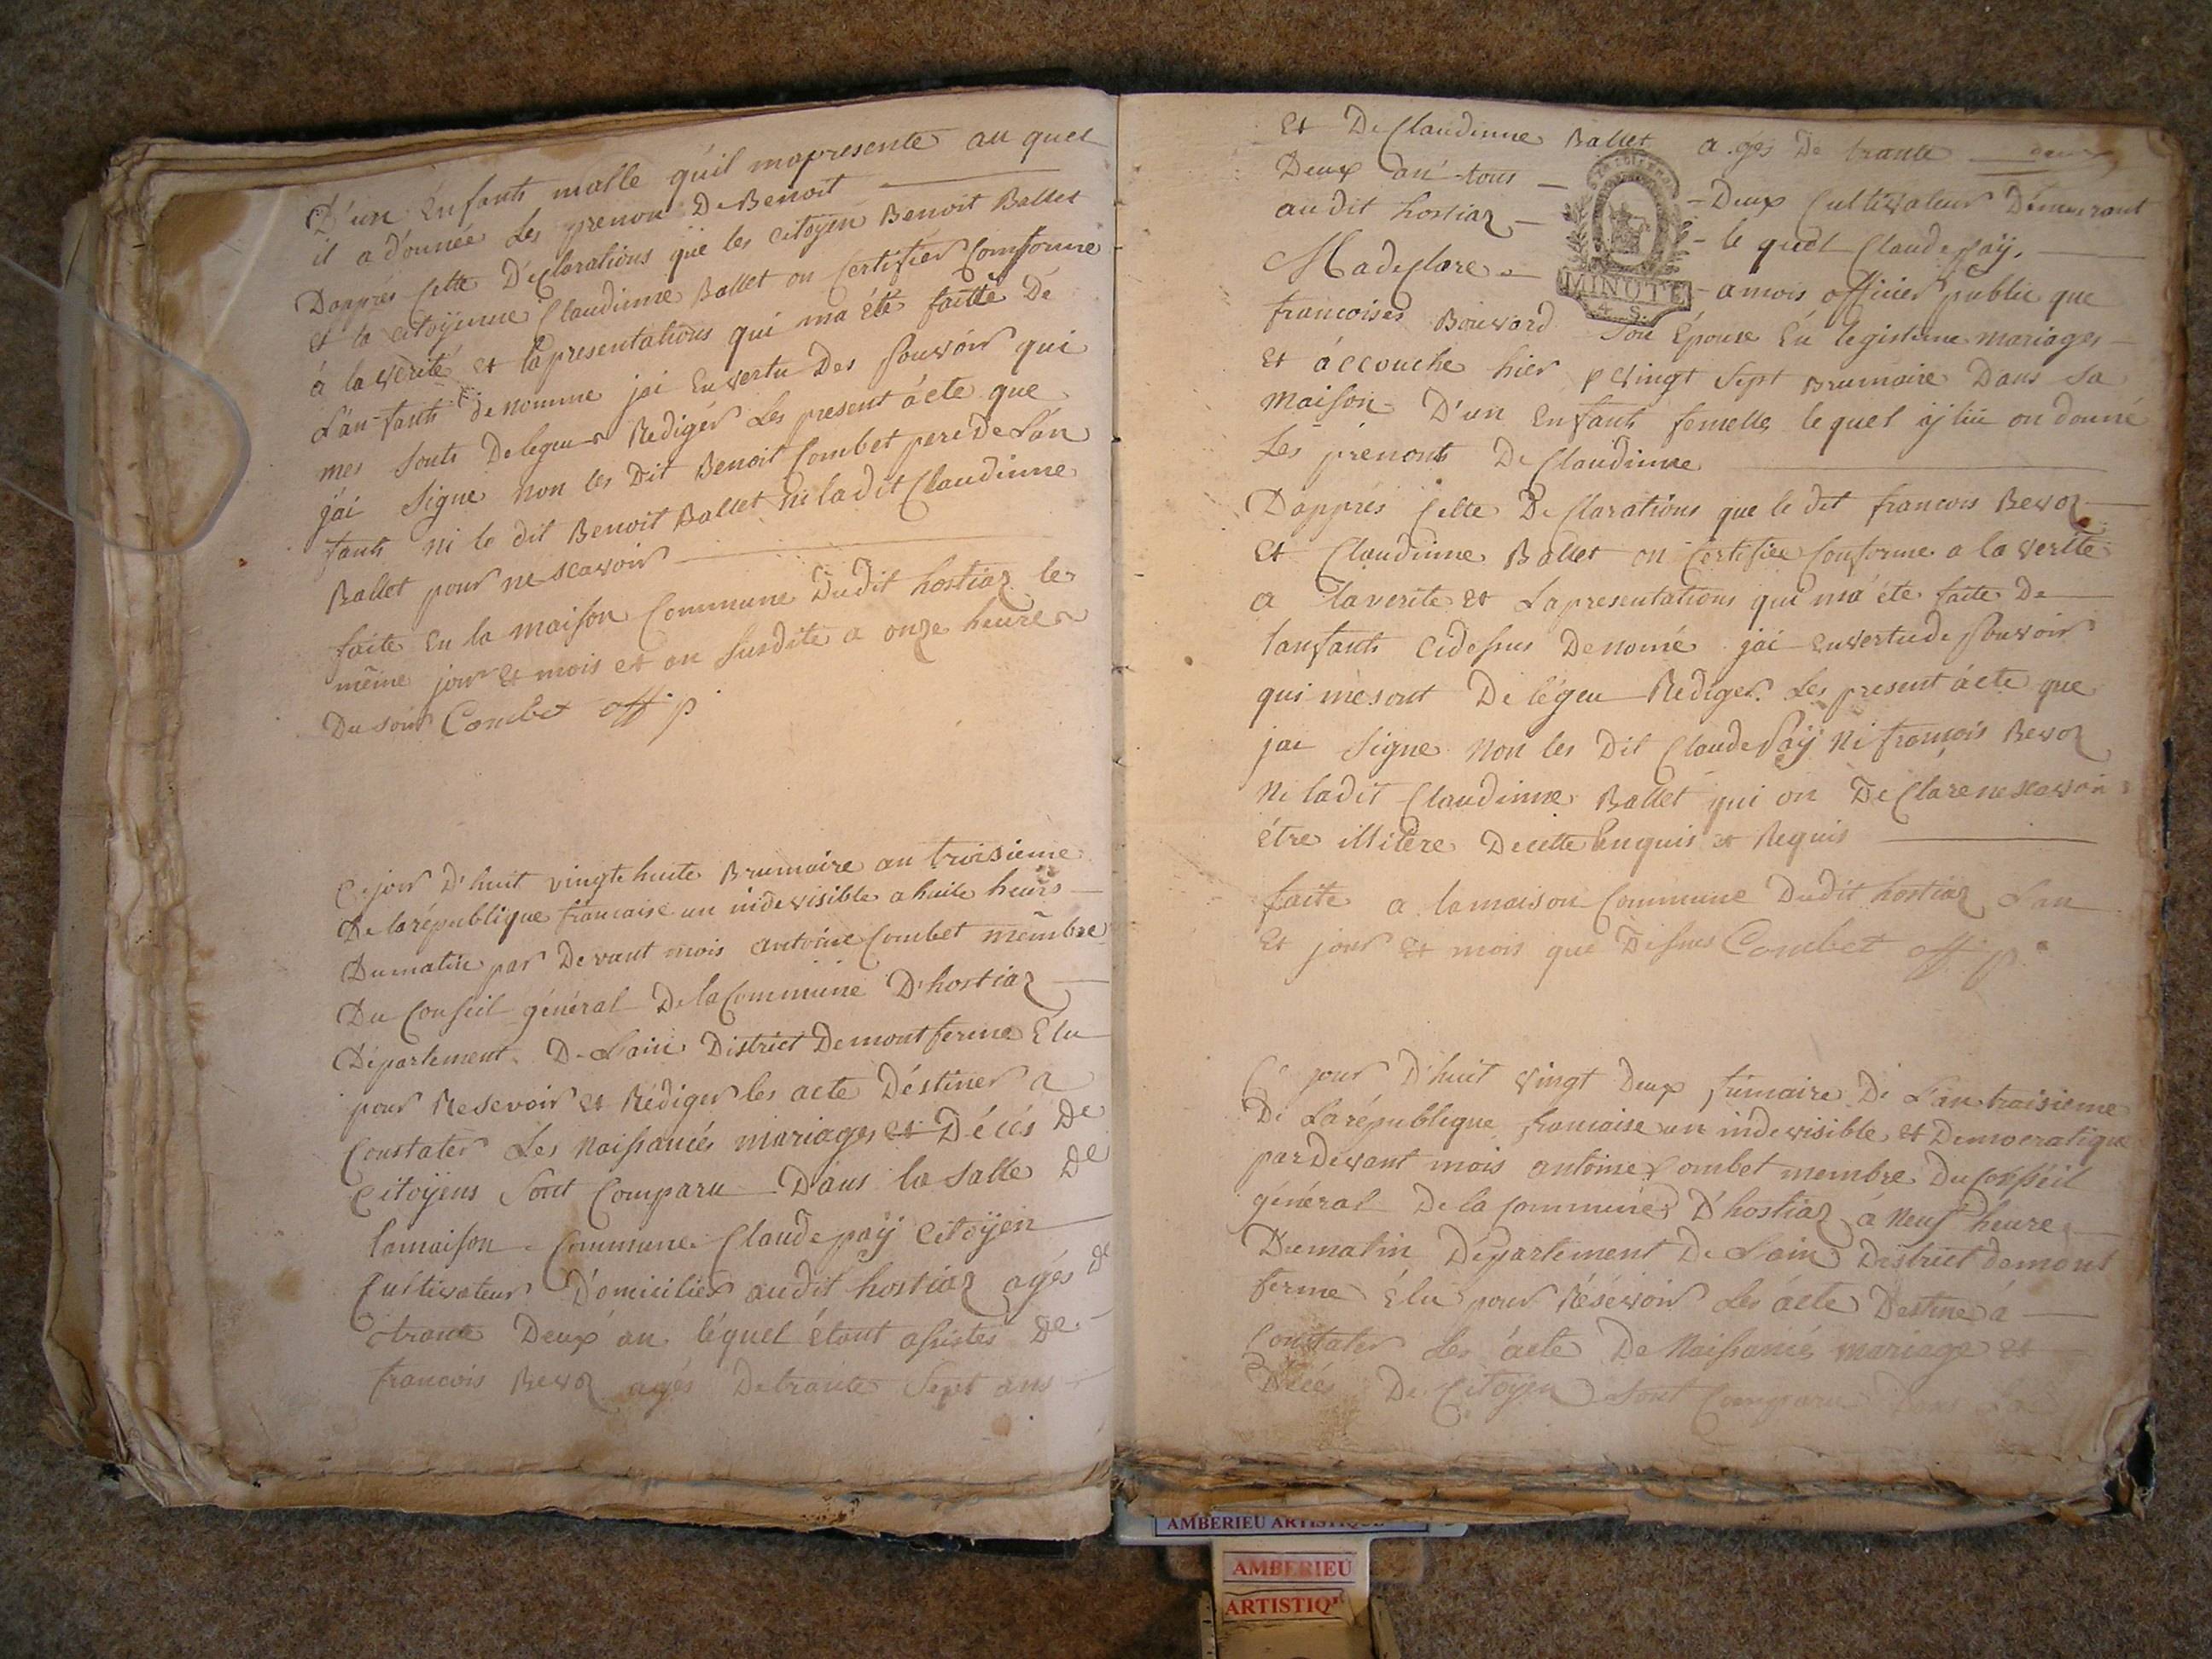 D'un Enfants malle qu'il mapresente au quel
il a d'onnée Les prenon De Benoit
Dapprés Cette Déclarations que les citoÿen Benoit Ballet
et la citoÿenne Claudinne Ballet on Certifier Comforme
à la verité et lapresentations qui ma été faitte De
L'an-fants denomme jai En vertu Des Pouvoir qui
mes Sonts Delegeur Redigér Les present ácte que
jái Signe Non les Dit Benoit Combet pere De L'an
fants Ni le dit Benoit Ballet Ni la dit Claudinne
Ballet pour ne scavoir
faite En la maison Commune Dudit hostiaz les
même jour & mois et an Susdite a onze heures
Du soir Combet off p
Ce jour D'huit vingt huite Brumaire an troisieme
De la république francaise un indevisible a huite heurs
Dumatin par Devant mois antoine Combet membre
Du Conseil général De la Commune D'hostiaz
Département De Lain District Demontferme Elu
pour Resevoir et Rédiger les acte Déstiner a
Constater Les Naissancés mariages et Décés De
Citoÿens Sont Comparu Dans la Salle De
lamaison Commune Claude paÿ Citoÿen
Cultivateur Domicilier audit hostiaz agés de
trante Deux an léquel étant assistés De
francois Bevoz agés De trante Sept ans
Et De Claudinne Ballet a gés De trante deux
Deux an tous Deux Cultivateur Démeurant
audit hostiaz le quel Claude Paÿ
Madeclare a mois officier public que
MINUTE
4 S.
francoises Bouvard Son Épouse En legistime mariages
Et áccouche hier vingt Sept Brumaire Dans Sa
Maison D'un Enfants femelle lequel on donné
Les prénonts De Claudinne
Dapprés Cette Déclarations que le dit francois Bevoz
Et Claudinne Ballet on Certifiee Conforme a la verite
a laverite et Lapresentations qui má éte faite De
lanfants cidessus Denomé jai En vertu de Pouvoir
qui mésont Delégeu Rediger Les present ácte que
jai Signe Non les Dit Claude Paÿ Ni francois Bevoz
Ni ladit Claudinne Ballet qui on Déclare ne scavoir
étre illitere Decette Enquis et Requis
faite a lamaison Commune Dudit hostiaz Lan
Et jour et mois que Dessus Combet off p
Ce jour D'huit vingt Deux frimaire De L'an traisieme
De Larépublique francaise un indevisible et Democratique
pardevant mois antoine Combet membre Du Conseil
général De la Commune D'hostiaz á Neuf heure
Dumatin Département De Lain District demont
ferme élu pour Résévoir Les ácte Destine á
Constater Les ácte De Naissancés mariage et
Décés De Citoÿen Sont Comparu Dans La
AMBERIEU ARTISTIQUE
AMBERIEU
ARTISTIQU